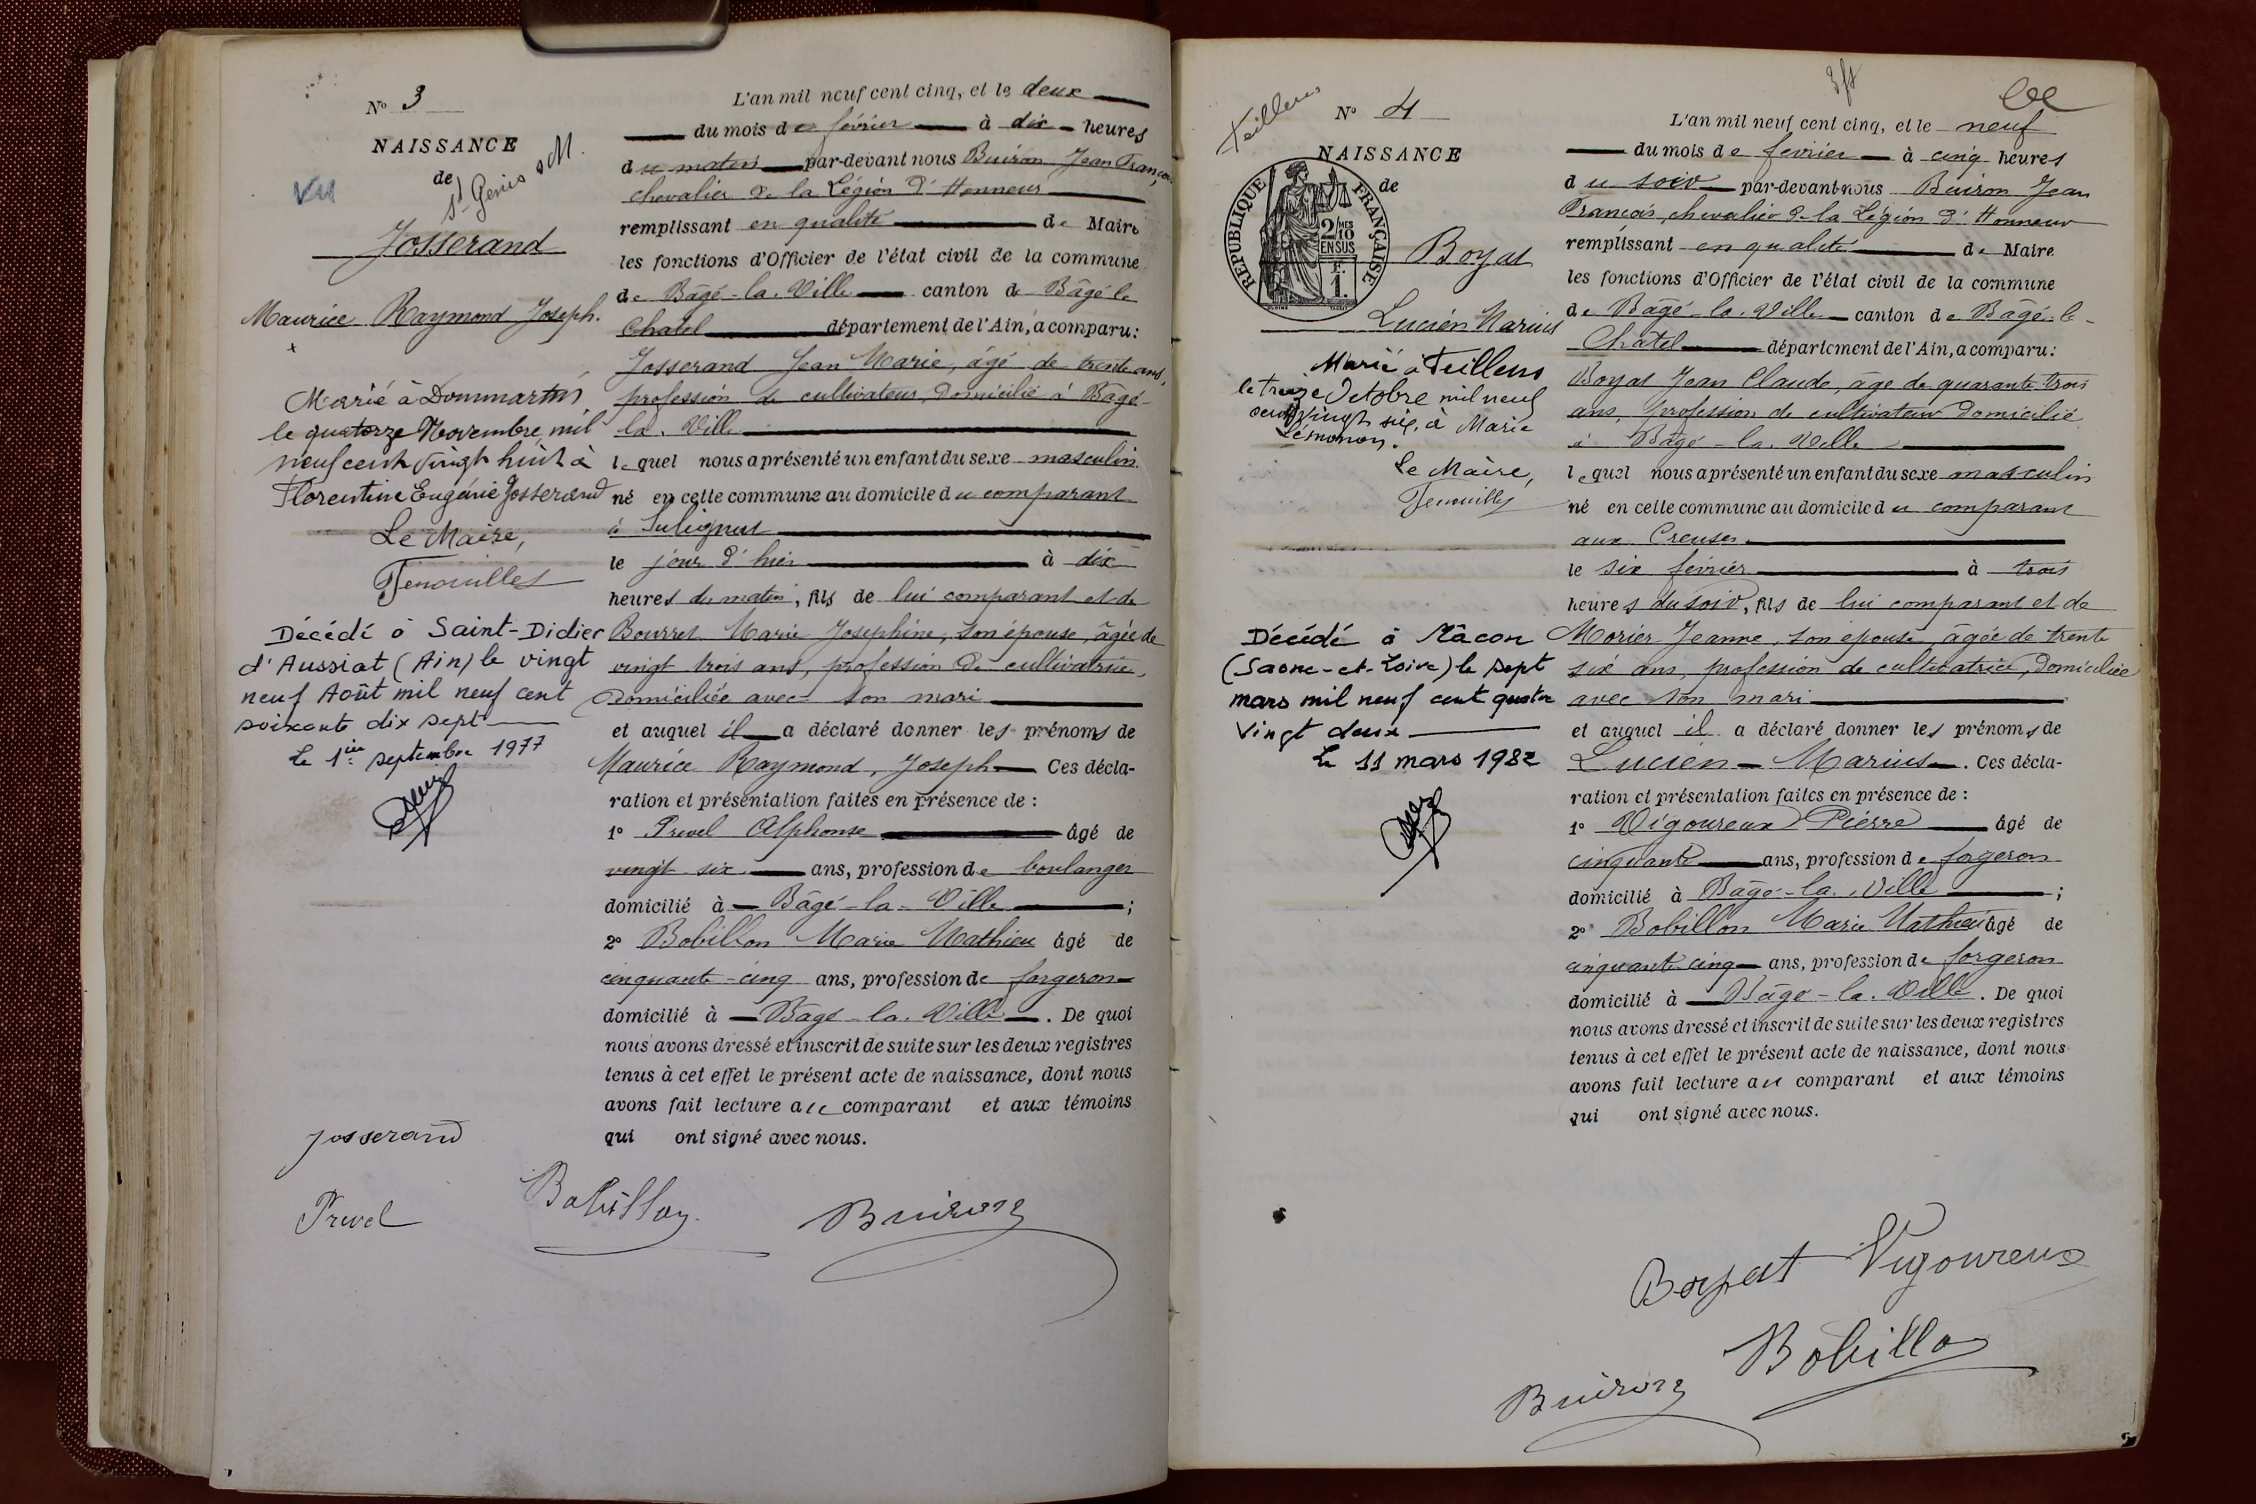 N° 3
NAISSANCE
de
St Genis s M.
Vu
Josserand
Maurice Raymond Joseph.
Marié à Dommartin
le quatorze Novembre mil
neuf cent vingt huit à
Florentine Eugénie Josserand
Le Maire,
Décédé à Saint-Didier
d'Aussiat (Ain) le vingt
neuf Août mil neuf cent
soixante dix sept
Le 1ier septembre 1977
L'an mil neuf cent cinq, et le deux
du mois de février à dix heures
du matin par-devant nous Buiron Jean François
chevalier de la Légion d'Honneur
remplissant en qualité de Maire
les fonctions d'Officier de l'état civil de la commune
de Bâgé-la-Ville canton de Bâgé le
Chatel département de l'Ain, a comparu:
Josserand Jean Marie, âgé de trente ans,
profession de cultivateur, domicilié à Bâgé-
la-Ville
lequel nous a présenté un enfant du sexe masculin
né en cette commune au domicile du comparant
à
le jour d'hier à dix
heures du matin, fils de lui comparant et de
Bourret Marie Joséphine, son épouse, âgée de
vingt trois ans, profession de cultivatrice,
domiciliée avec son mari
et auquel il a déclaré donner les prénoms de
Maurice Raymond, Joseph Ces décla-
ration et présentation faites en présence de :
1° Prevel Alphonse âgé de
vingt six ans, profession de boulanger
domicilié à Bâgé-la-Ville ;
2° Bobillon Marie Mathieu âgé de
cinquante-cinq ans, profession de forgeron
domicilié à Bâgé-la-Ville. De quoi
nous avons dressé et inscrit de suite sur les deux registres
tenus à cet effet le présent acte de naissance, dont nous
avons fait lecture au comparant et aux témoins
qui ont signé avec nous.
Josserand
Prevel
Bobillon
Buiron
Feillens
N° 4
NAISSANCE
de
RÉPUBLIQUE FRANÇAISE
2/10MES
EN SUS
1F.
Boyat
Lucien Marius
Marié à Feillens
le treize Octobre mil neuf
cent vingt six, à Marie
Lémonon.
Le Maire,
Décédé à Mâcon
(Saone-et-Loire) le sept
mars mil neuf cent quatre
vingt deux
Le 11 mars 1982
L'an mil neuf cent cinq, et le neuf
du mois de février à cinq heures
du soir par-devant nous Buiron Jean
François, chevalier de la Légion d'Honneur
remplissant en qualité de Maire
les fonctions d'Officier de l'état civil de la commune
de Bâgé-la-Ville canton de Bâgé-le-
Chatel département de l'Ain, a comparu:
Boyat Jean Claude, âgé de quarante trois
ans, profession de cultivateur domicilié
à Bâgé-la-Ville
lequel nous a présenté un enfant du sexe masculin
né en cette commune au domicile du comparant
aux Creuses
le six février à trois
heures du soir, fils de lui comparant et de
Morier Jeanne, son épouse, âgée de trente
six ans, profession de cultivatrice, domiciliée
avec son mari
et auquel il a déclaré donner les prénoms de
Lucien - Marius. Ces décla-
ration et présentation faites en présence de :
1° Vigoureux Pierre âgé de
cinquante ans, profession de forgeron
domicilié à Bâgé-la-Ville ;
2° Bobillon Marie Mathieu âgé de
cinquante cinq ans, profession de forgeron
domicilié à Bâgé-la-Ville. De quoi
nous avons dressé et inscrit de suite sur les deux registres
tenus à cet effet le présent acte de naissance, dont nous
avons fait lecture au comparant et aux témoins
qui ont signé avec nous.
Boyat Vigoureux
Bobillon
Buiron